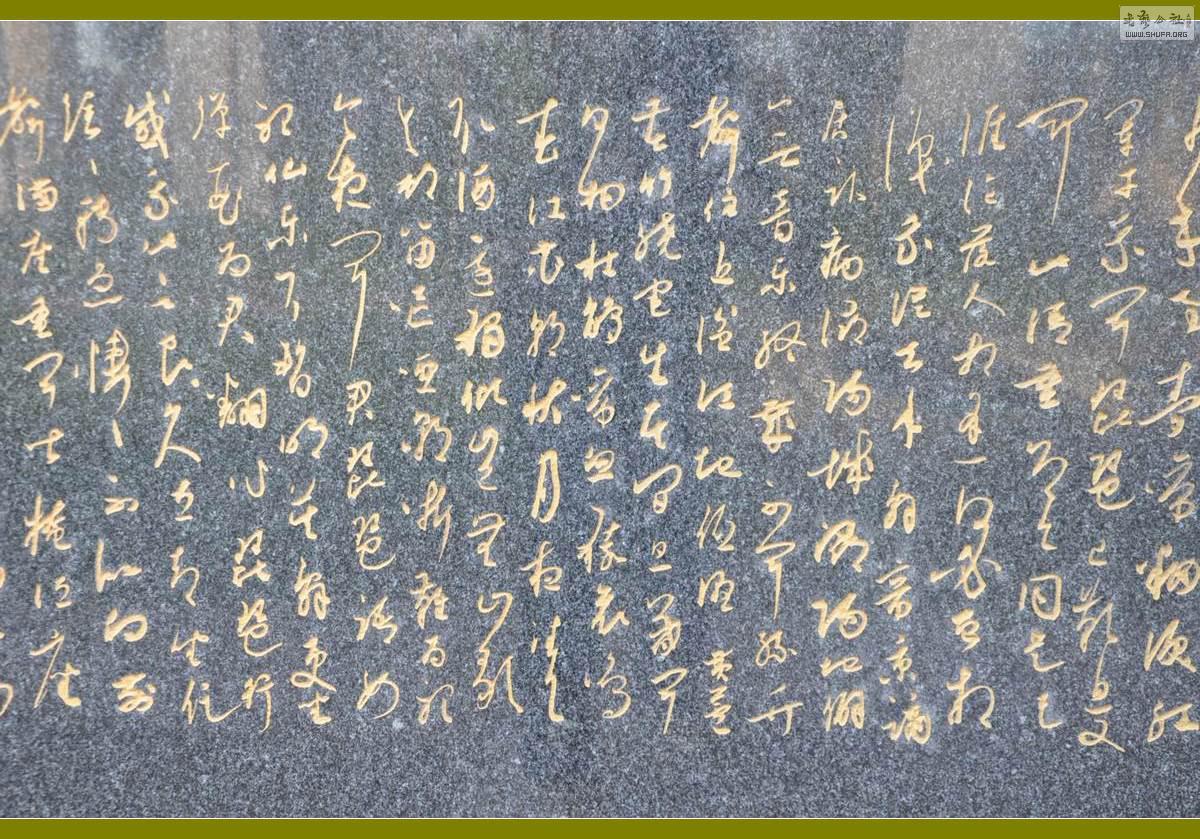 少年事夢啼妝淚紅
闌干我聞琵琶已歎息又
聞此語重唧唧同是天
涯淪落人相逢何必曾相
識我從去年辭帝京謫
居臥病潯陽城潯陽地僻
無音樂終歲不聞絲竹
聲住近湓江地低濕黃蘆
苦竹繞宅生其間旦暮聞
何物杜鵑啼血猿哀鳴
春江花朝秋月夜往往
取酒還獨傾豈無山歌
與村笛嘔啞嘲哳難為聽
今夜聞君琵琶語如
聽仙樂耳暫明莫辭更坐
彈一曲為君翻作琵琶行
感我此言良久立卻坐促
弦弦轉急淒淒不似向前
聲滿座重聞皆掩泣座
WWW.SHUFA.ORG